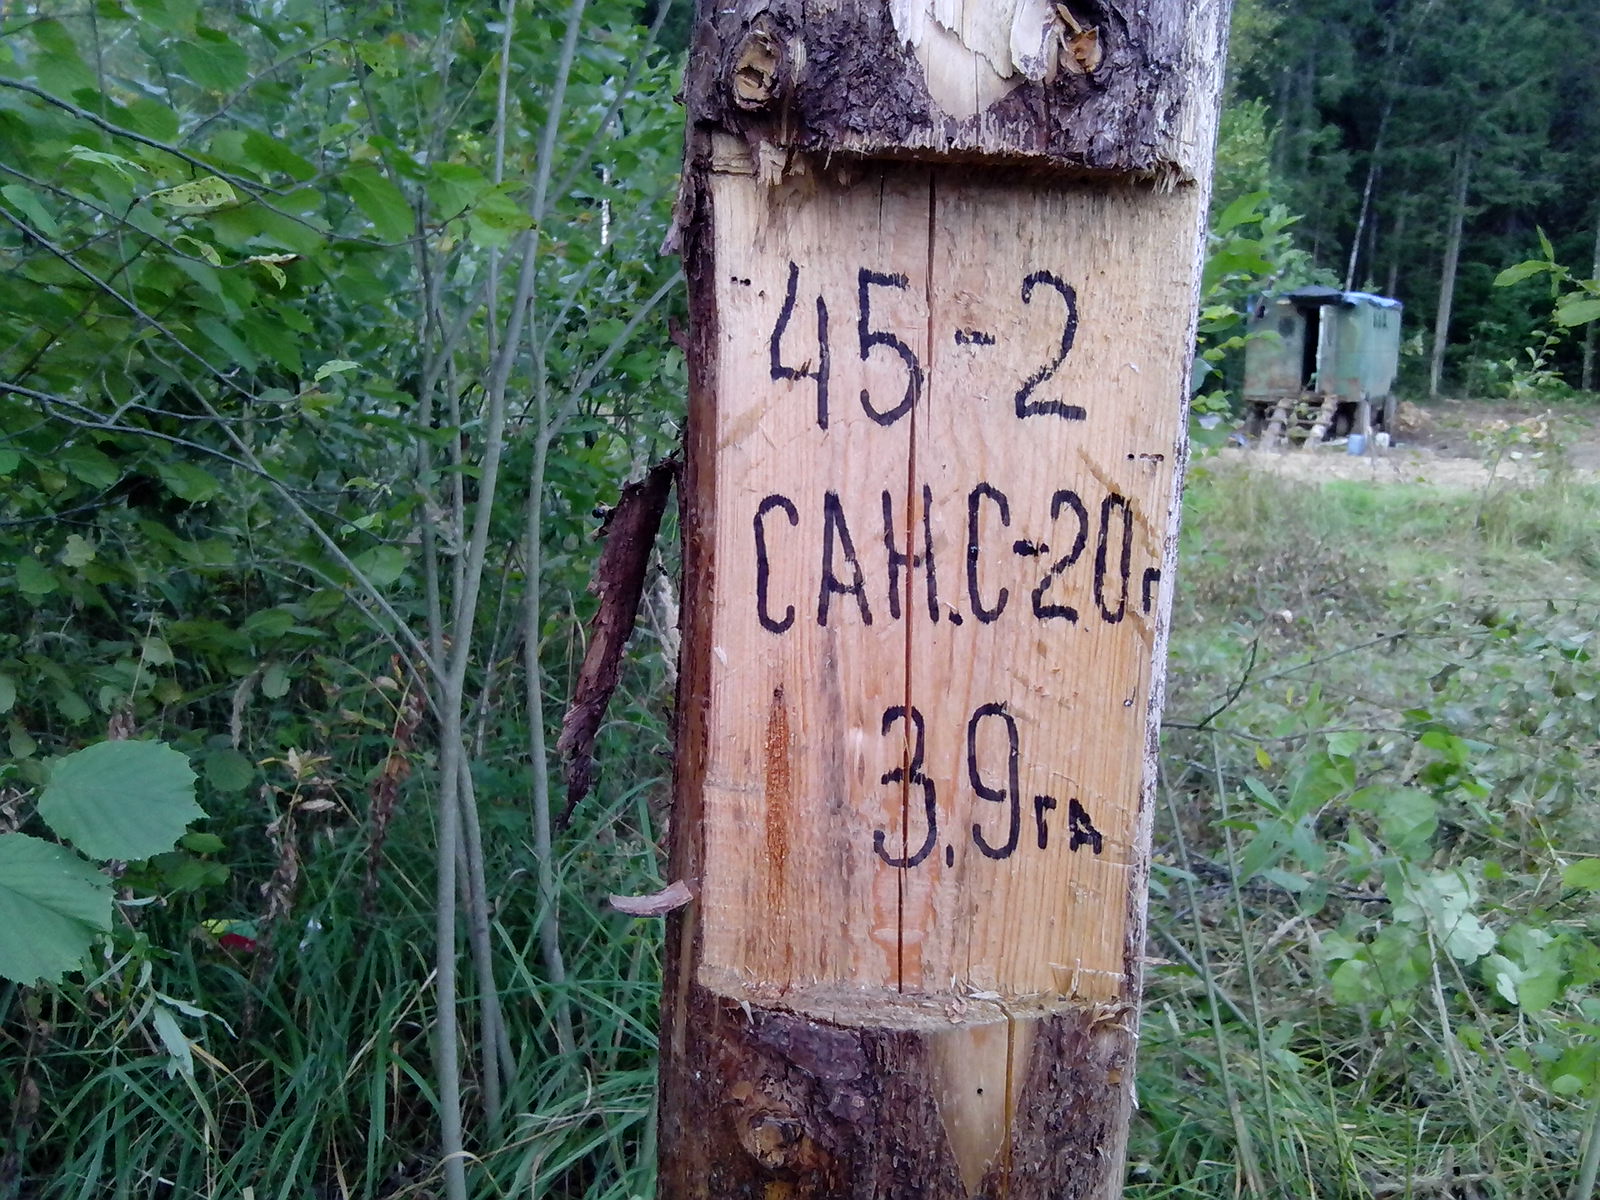 45-2
САН.С-20г
3,9га